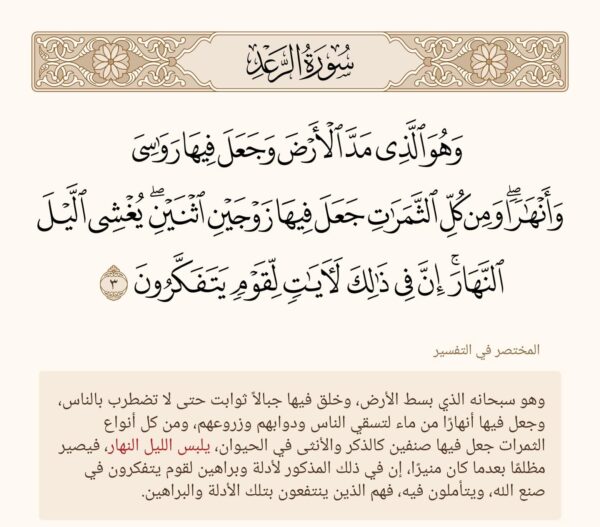 سُورَةُ الرَّعۡدِ
وَهُوَ ٱلَّذِي مَدَّ ٱلۡأَرۡضَ وَجَعَلَ فِيهَا رَوَٰسِيَ
وَأَنۡهَٰرٗاۖ وَمِن كُلِّ ٱلثَّمَرَٰتِ جَعَلَ فِيهَا زَوۡجَيۡنِ ٱثۡنَيۡنِۖ يُغۡشِي ٱلَّيۡلَ
ٱلنَّهَارَۚ إِنَّ فِي ذَٰلِكَ لَأٓيَٰتٖ لِّقَوۡمٖ يَتَفَكَّرُونَ ٣
المختصر في التفسير
وهو سبحانه الذي بسط الأرض، وخلق فيها جبالاً ثوابت حتى لا تضطرب بالناس،
وجعل فيها أنهارًا من ماء لتسقي الناس ودوابهم وزروعهم، ومن كل أنواع
الثمرات جعل فيها صنفين كالذكر والأنثى في الحيوان، يلبس الليل النهار، فيصير
مظلمًا بعدما كان منيرًا، إن في ذلك المذكور لأدلة وبراهين لقوم يتفكرون في
صنع الله، ويتأملون فيه، فهم الذين ينتفعون بتلك الأدلة والبراهين.